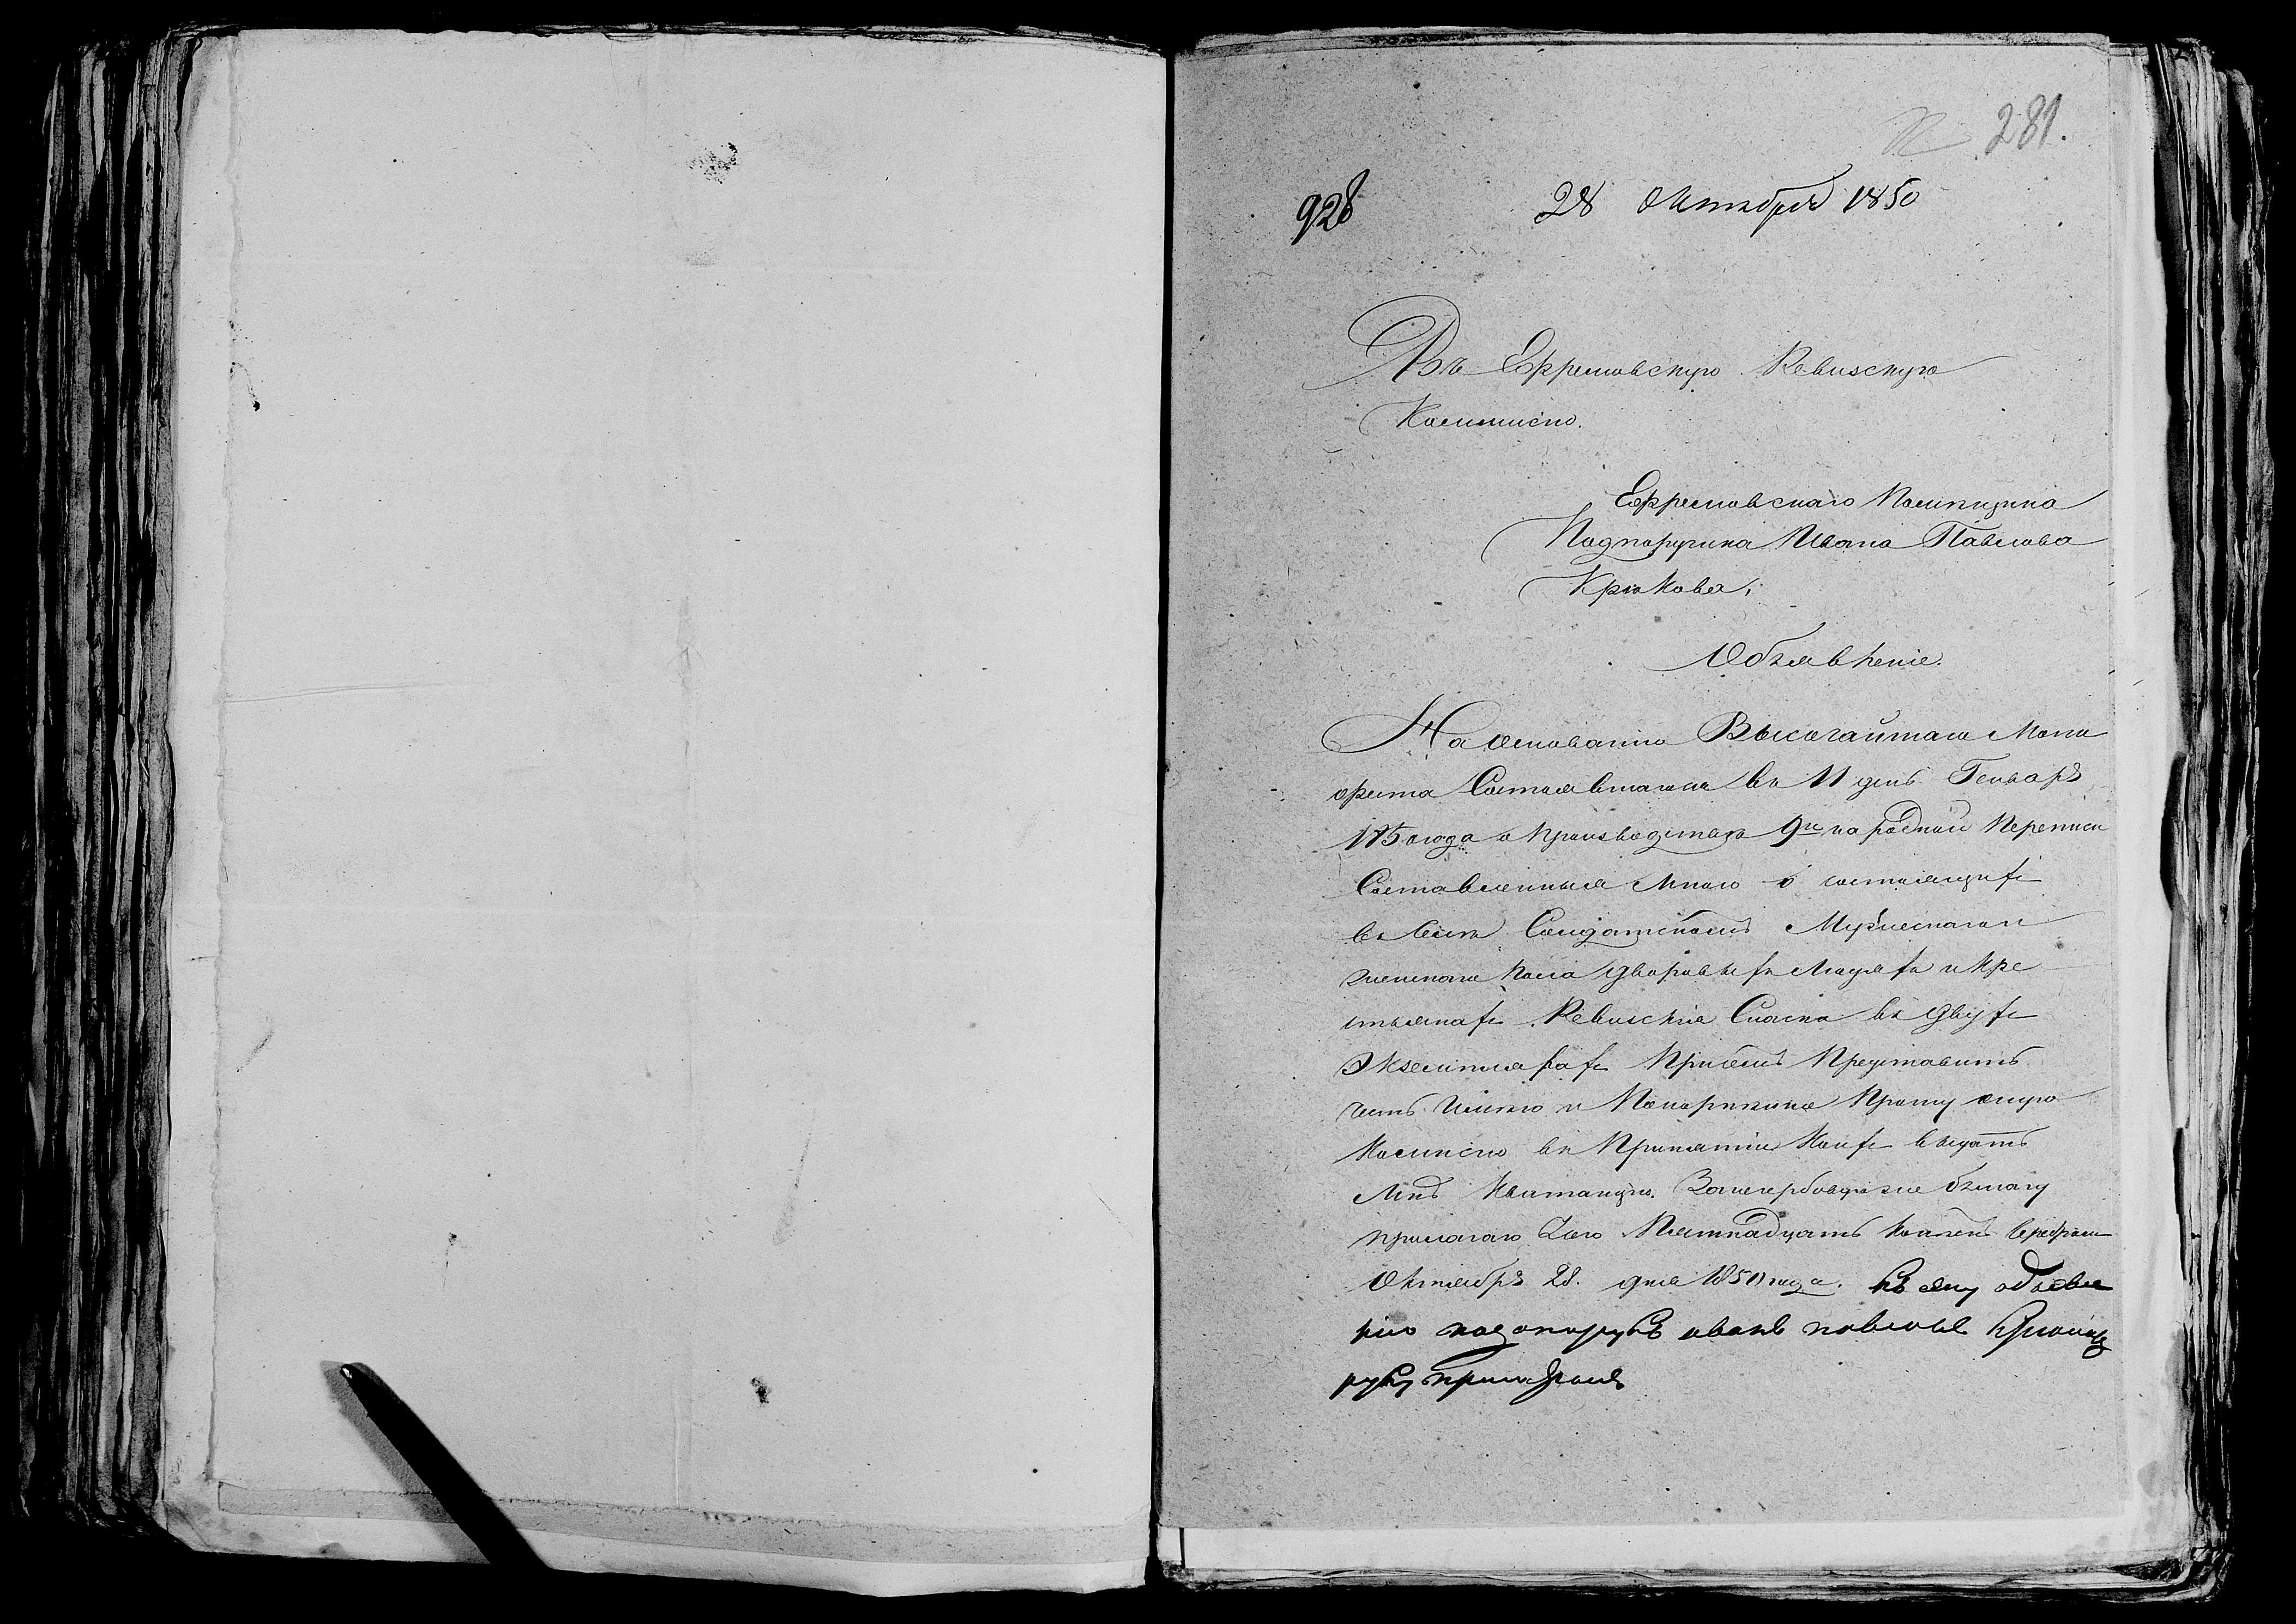 281.
928
28 Октября 1850
Въ Ефремовскую Ревизскую
Коммисiю.
Ефремовскаго Помѣщика
Подпоручика Ивана Павлова
Крюкова,
Объявленiе.
На основанiи Высочайшаго Мани
феста Состоявшагося въ 11 день Генваря
1850 года о производствѣ 9й народной Переписи
Составленныя мною о состоящихъ
въ Селѣ Солдатскомъ Мужескаго и
женскаго пола дворовыхъ Людяхъ и Кре
стьянахъ Ревизскiя Сказки въ двухъ
Экземплярахъ При семъ Представить
честь имѣю и Покорнѣйше Прошу оную
Комисiю въ Принятiи коихъ выдать
Мнѣ Квитанцiю. За гербовую же бумагу
прилагаю Пятнадцать копѣекъ серебромъ
Октября 28. дня 1850 года. Къ сему объявле
нiю подпорутчикъ иванъ павловъ Крюковъ
руку приложилъ